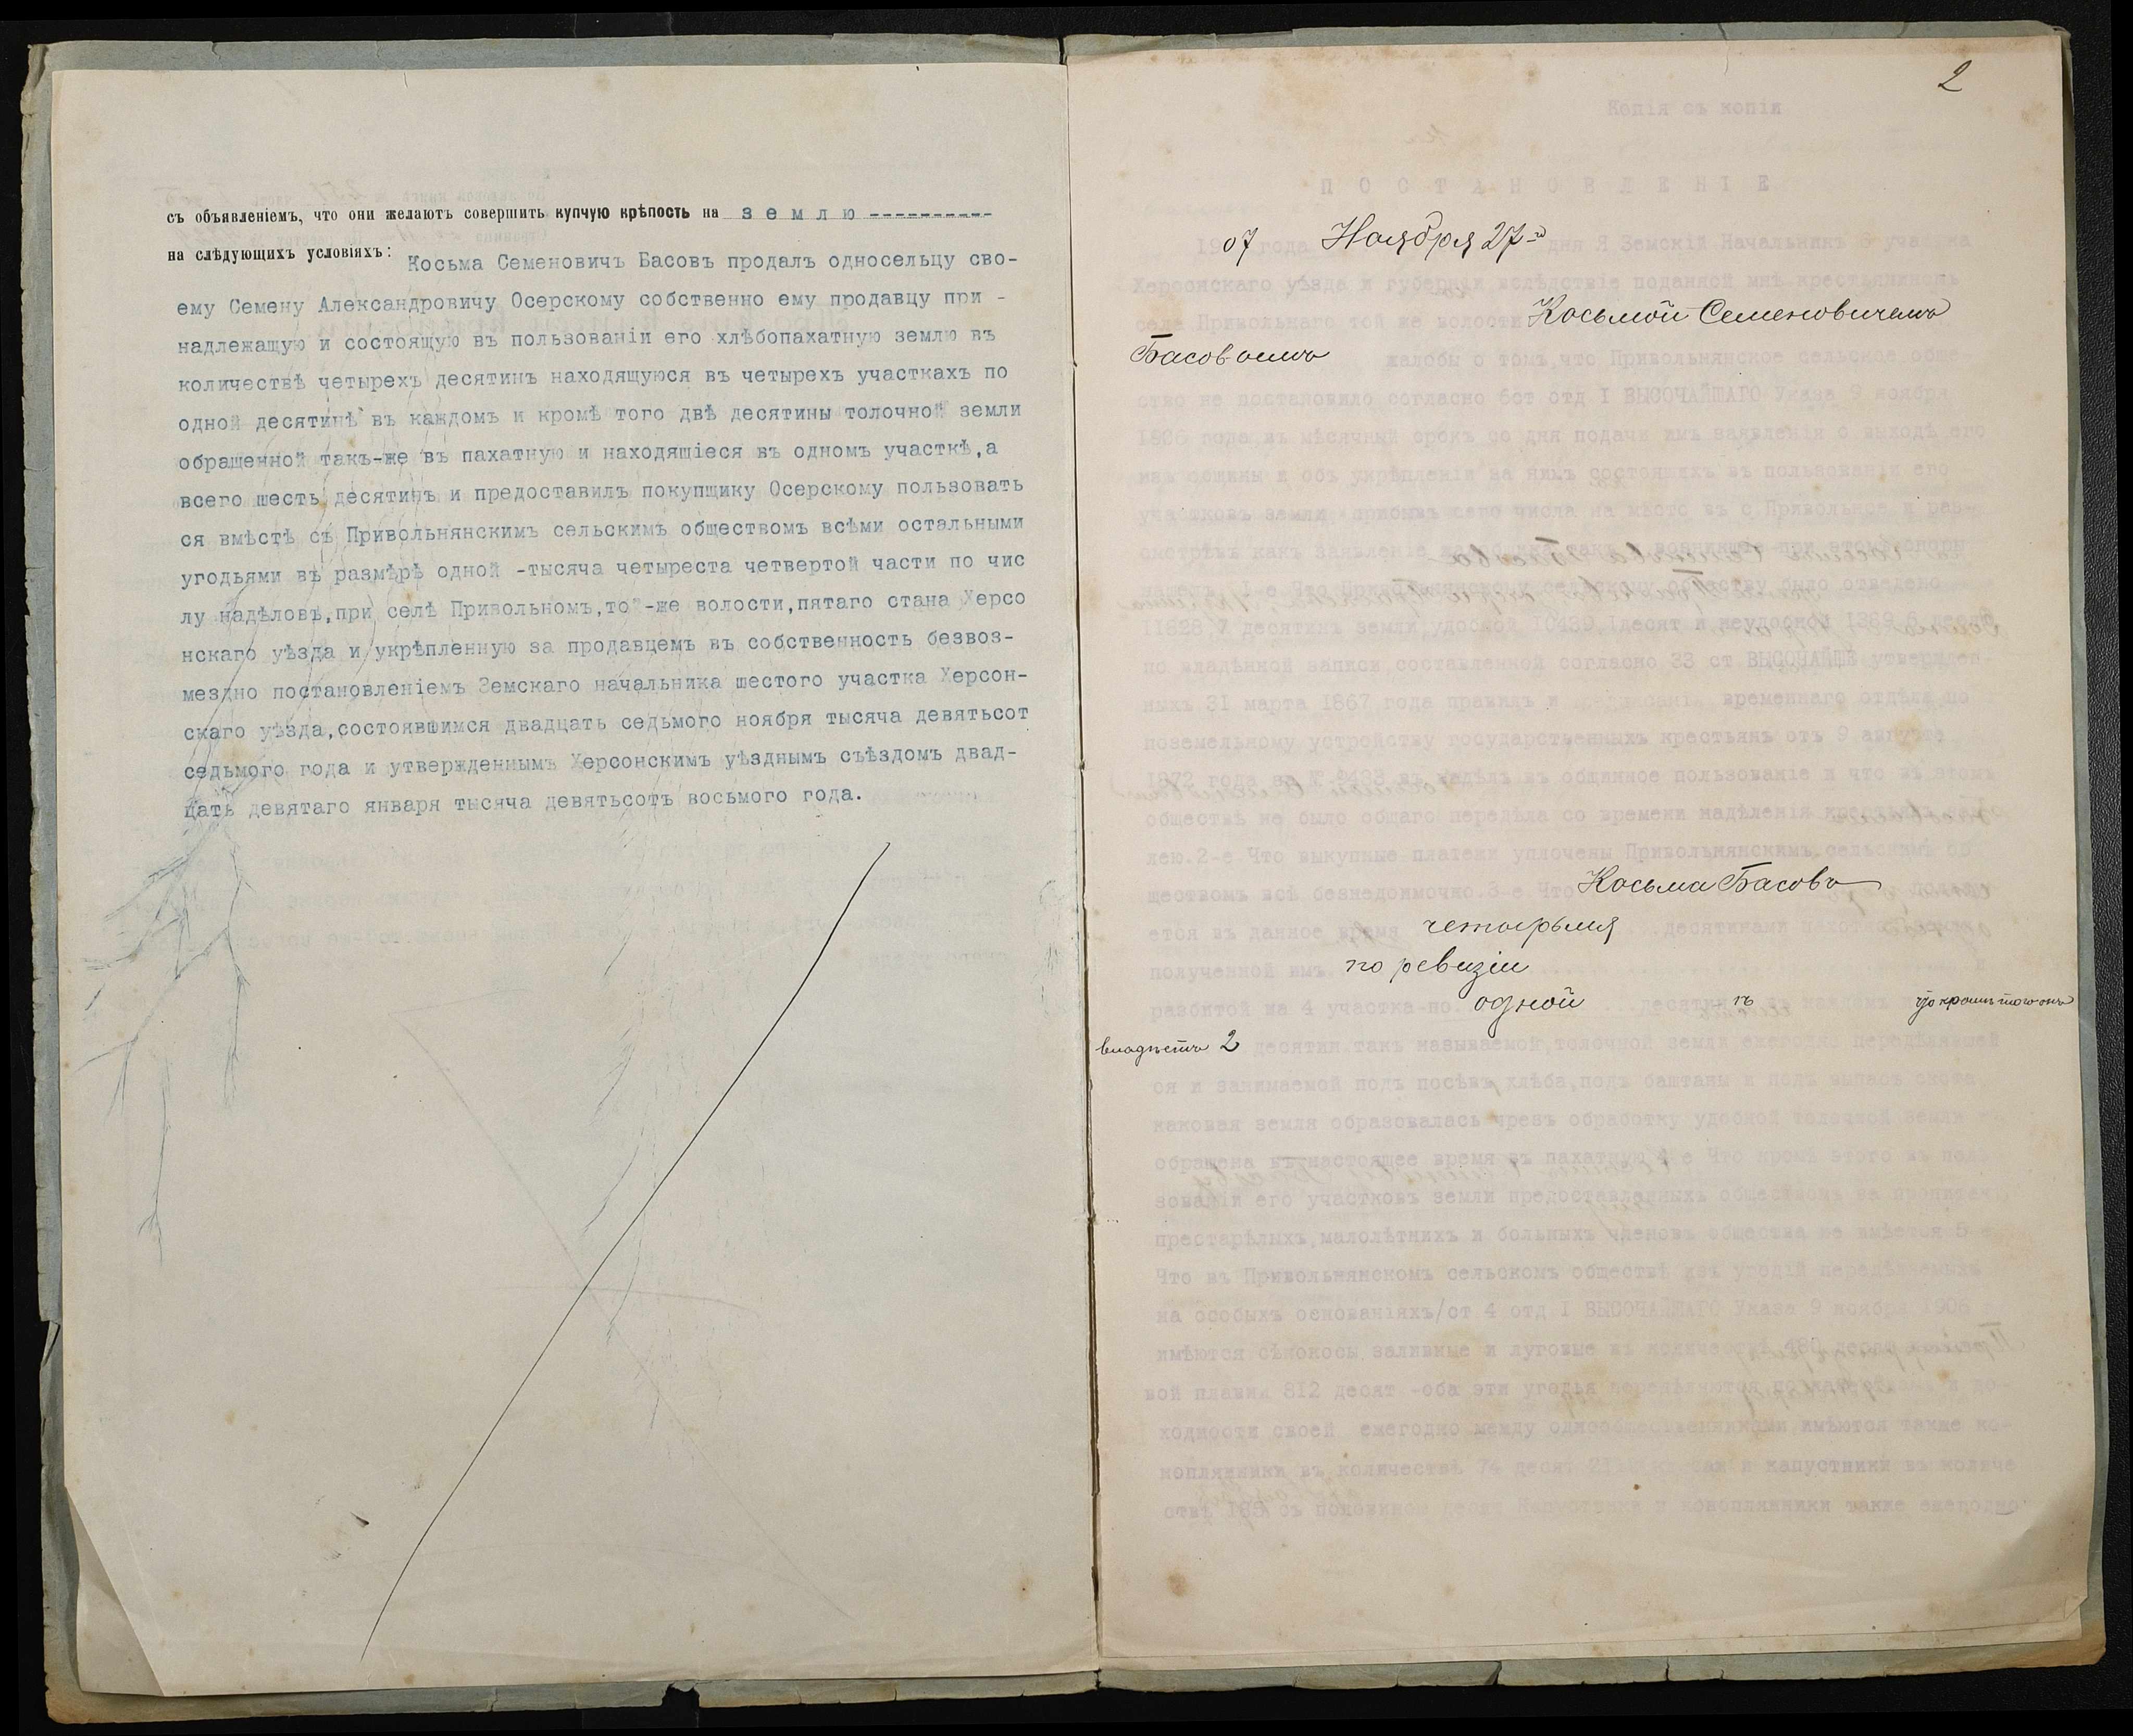 съ объявленіемъ, что они желаютъ совершить купчую крѣпость на землю ----------
на слѣдующихъ условіяхъ: Косьма Семеновичъ Басовъ продалъ односельцу сво-
ему Семену Александровичу Осерскому собственно ему продавцу при -
надлежащую и состоящую въ пользованіи его хлѣбопахатную землю въ
количествѣ четырехъ десятинъ находящуюся въ четырехъ участкахъ по
одной десятинѣ въ каждомъ и кромѣ того двѣ десятины толочной земли
обращенной такъ-же въ пахатную и находящіеся въ одномъ участкѣ,а
всего шесть десятинъ и предоставилъ покупщику Осерскому пользовать
ся вмѣстѣ съ Привольнянскимъ сельскимъ обществомъ всѣми остальными
угодьями въ размѣрѣ одной -тысяча четыреста четвертой части по чис
лу надѣловъ,при селѣ Привольномъ,той-же волости,пятаго стана Херсо
нскаго уѣзда и укрѣпленную за продавцемъ въ собственность безвоз-
мездно постановленіемъ Земскаго начальника шестого участка Херсон-
скаго уѣзда,состоявшимся двадцать седьмого ноября тысяча девятьсот
седьмого года и утвержденнымъ Херсонскимъ уѣзднымъ съѣздомъ двад-
цать девятаго января тысяча девятьсотъ восьмого года.
2
Копія съ копіи
ПОСТАНОВЛЕНІЕ
1907 года Ноября 27-го дня Я Земскій Начальникъ 6 участка
Херсонскаго уѣзда и губерніи вслѣдствіе поданной мнѣ крестьяниномъ
села Привольнаго той же волости Косьмой Семеновичемъ
Басовымъ жалобы о томъ,что Привольнянское сельское
ство не постановило согласно 6ст отд I ВЫСОЧАЙШАГО Указа 9 ноября
1906 года въ мѣсячный срокъ со дня подачи имъ заявленія о выходѣ его
изъ общины и объ укрѣпленіи за нимъ состоящихъ въ пользованіи его
участковъ земли прибывъ сего числа на мѣсто въ с Привольное и раз-
смотрѣвъ какъ заявленіе
1-е Что Привольнянскому сельскому обществу было отведено
11828 7 десятинъ земли удобной 10459 1десят и неудобной 1369 6 десят
по владѣнной записи составленной согласно 33 ст ВЫСОЧАЙШЕ утвержден-
ныхъ 31 марта 1867 года правилъ и временнаго отдѣла по
поземельному устройству государственныхъ крестьянъ отъ 9 августа
1872 года за № въ надѣлъ въ общинное пользованіе и что въ этомъ
обществѣ не было общаго передѣла со времени надѣленія крестьянъ зем-
лею.2-е Что выкупные платежи уплочены Привольнянскимъ сельскимъ об
ществомъ всѣ безнедоимочно.3-е Что Косьма Басовъ
ется въ данное время четырьмя десятинами пахотной
полученной имъ по ревизіи
разбитой на 4 участка по одной десятинѣ въ каждомъ что кромѣ того онъ
владѣетъ 2 десятин.такъ называемой,толочной земли ежегодно передѣлявшей
ся и занимаемой подъ посѣвъ хлѣба,подъ баштаны и подъ выпасъ скота
каковая земля образовалась чрезъ обработку удобной толочной земли
обращена въ настоящее время въ пахатную 4-е Что кромѣ этого въ поль
зованіи его участковъ земли предоставленныхъ обществомъ на пропитан
престарѣлыхъ,малолѣтнихъ и больныхъ членовъ общества не имѣется 5-е
Что въ Привольнянскомъ сельскомъ обществѣ изъ угодій передѣляемыхъ
на особыхъ основаніяхъ/ст 4 отд I ВЫСОЧАЙШАГО Указа 9 ноября 1906
имѣются сѣнокосы заливные и луговые въ количествѣ 480 десят
вой плавни 812 десят -оба эти угодья передѣляются по и до-
ходности своей ежегодно между однообщественниками имѣются также ко-
ноплянники въ количествѣ 74 десят и капустники въ количе
ствѣ 185 съ половиною десят Капустники и коноплянники также ежегодно